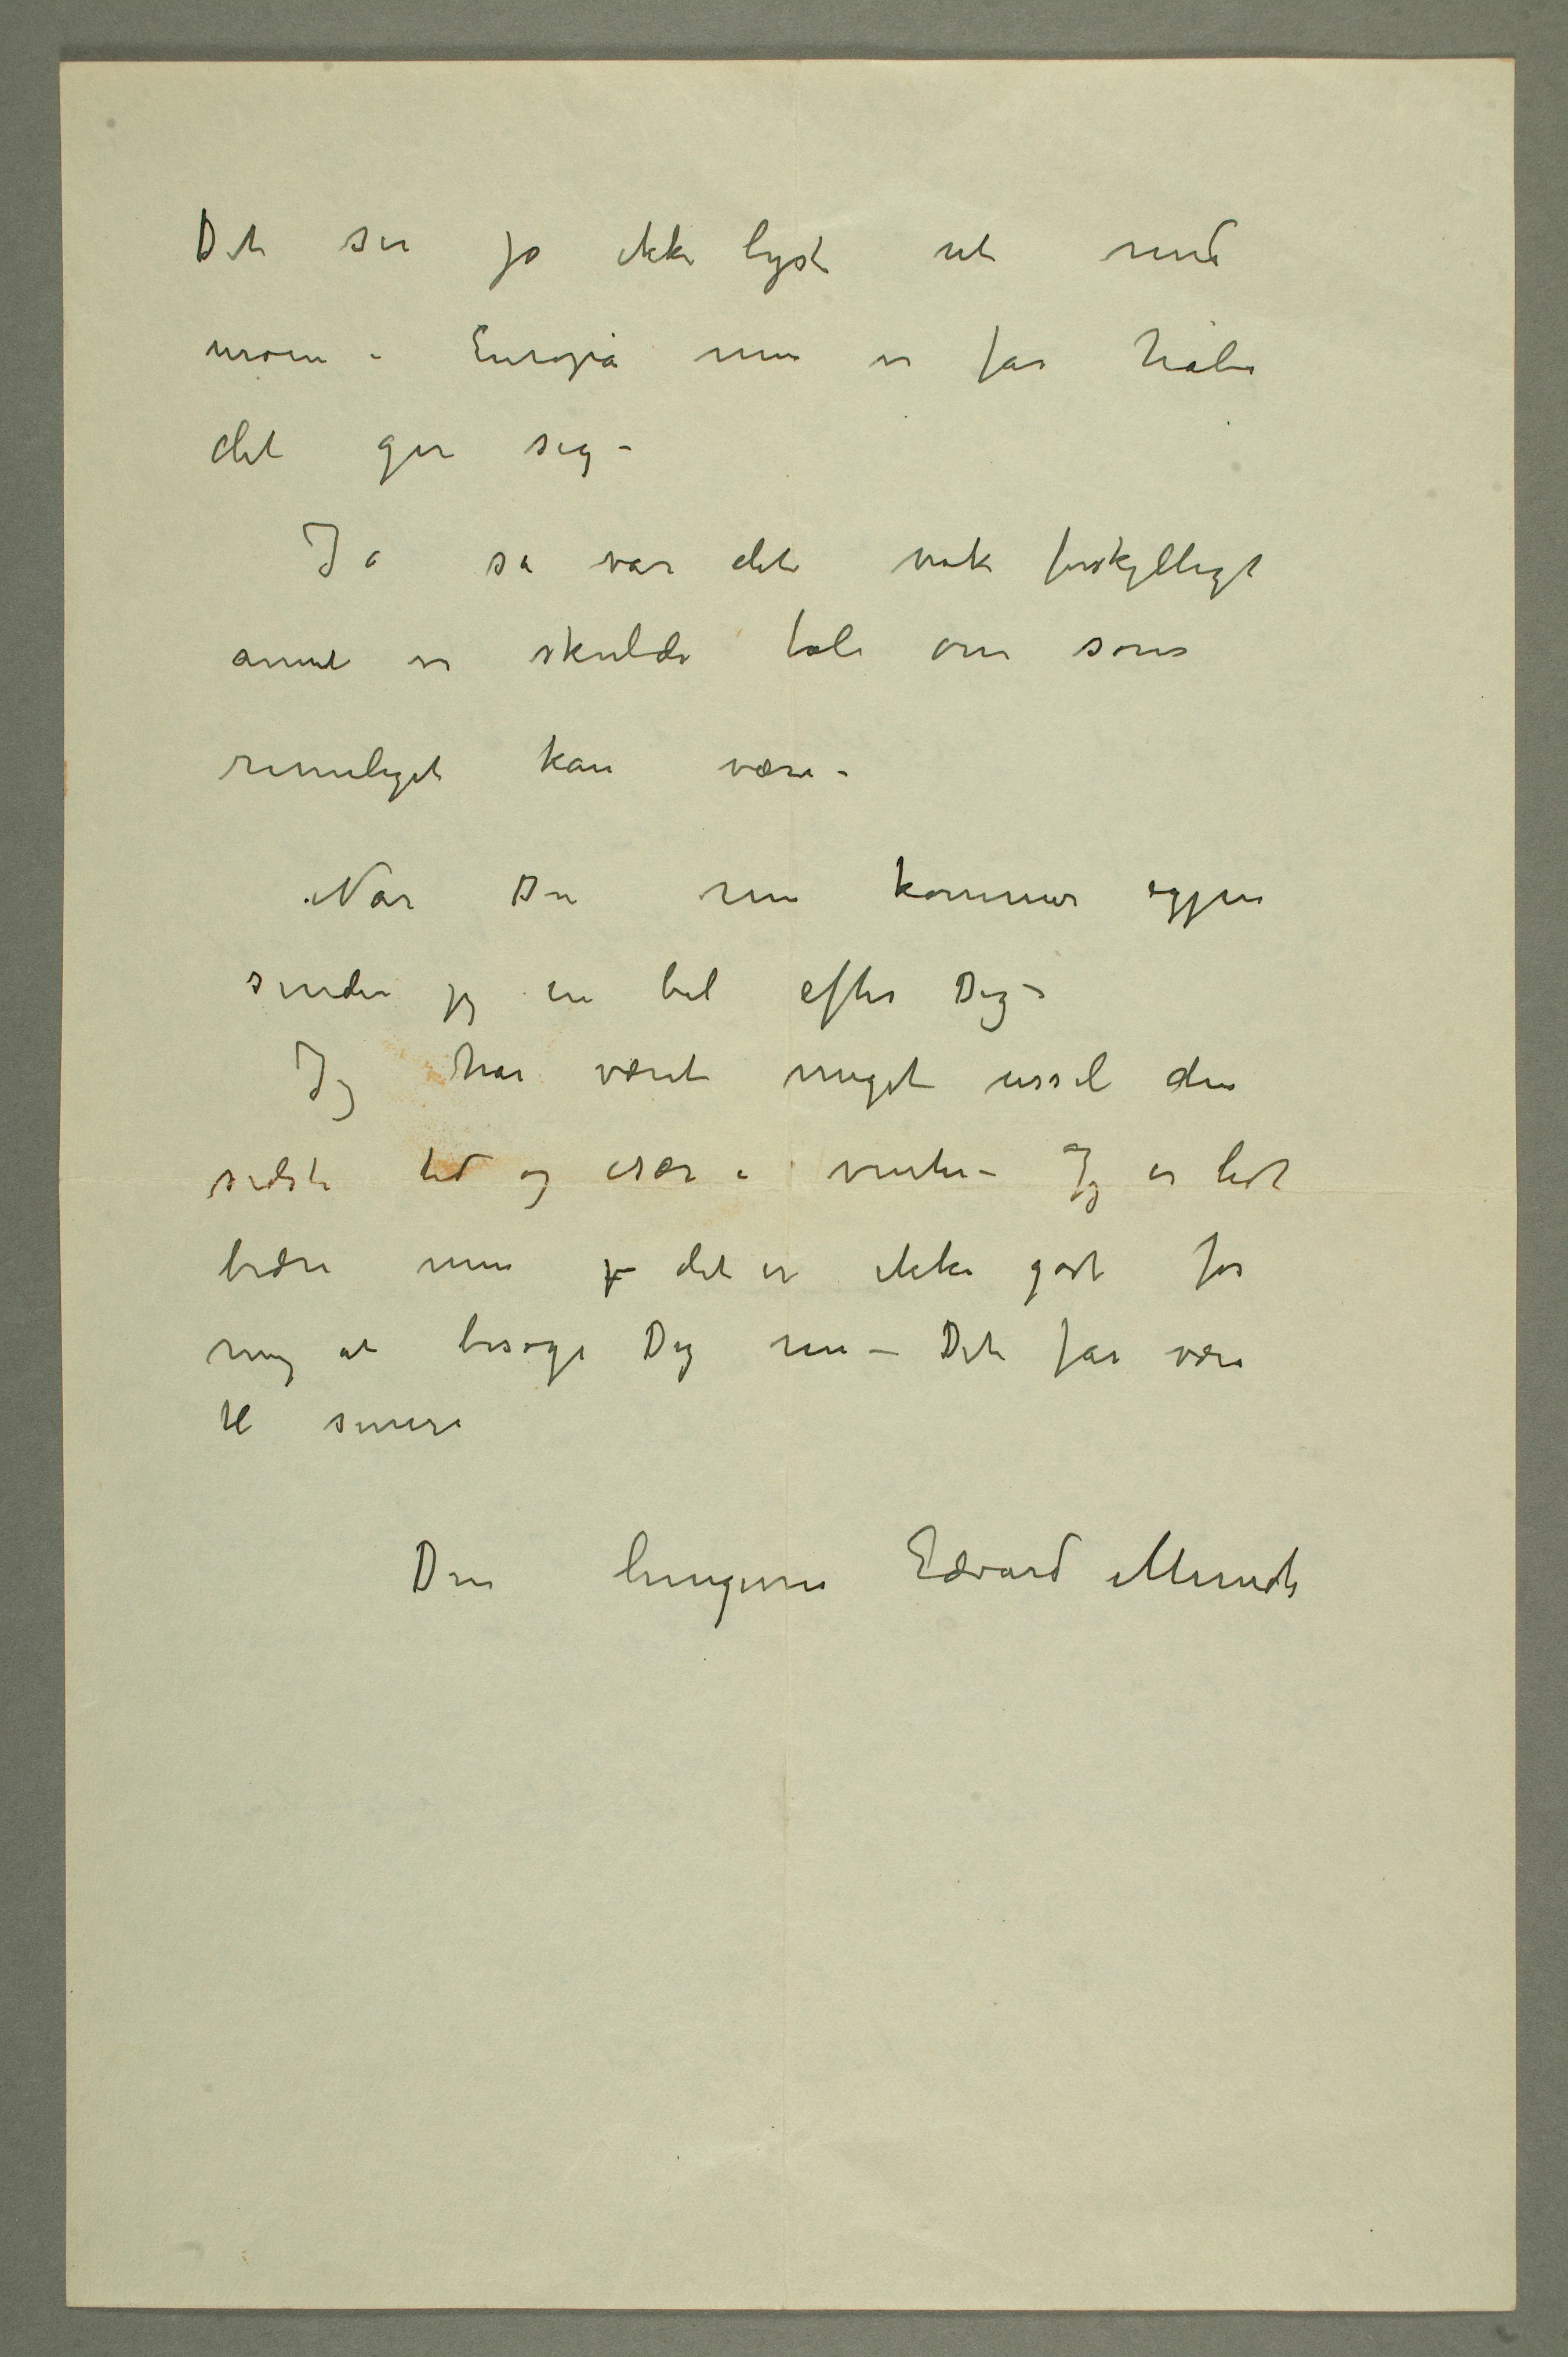 Det ser jo ikke lyst ut med
uroen i Europa men vi får håbe
det gir sig –
Ja så var det nok forskjelligt
annet vi skulde tale om som
rimeligt kan være –
Når Du nu kommer igjen
sender jeg en bil efter Dig –
Jeg har været meget ussel den
sidste tid og især i vinter – Jeg er lidt
bedre men det er ikke godt for
mig at besøge Dig nu – Det får være
til senere
Din hengivne Edvard Munch